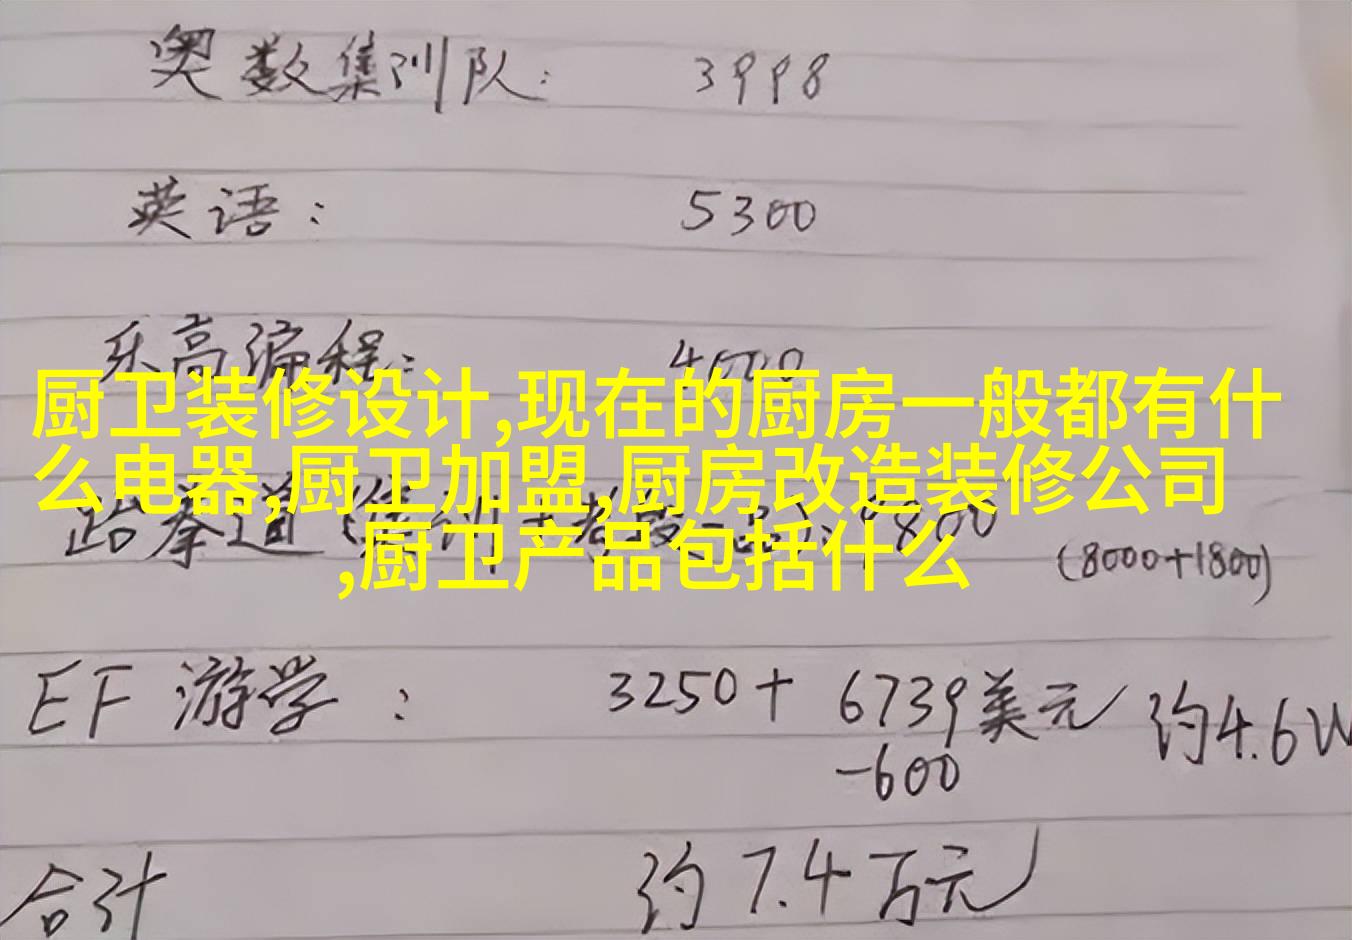 奥数集训队: 3998
英语: 5300
乐高编程:
厨卫装修设计,现在的厨房一般都有什
么电器,厨卫加盟,厨房改造装修公司
,厨卫产品包括什么
跆拳道 9800
(8000+1800)
EF 游学: 3250+ 6739美元 约4.6W
-600
合计 约7.4万元